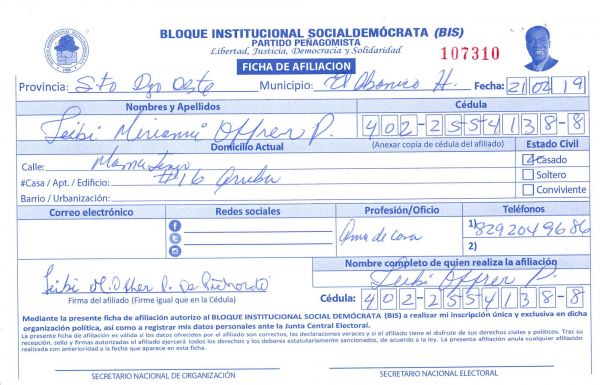 BLOQUE INSTITUCIONAL SOCIALDEMÓCRATA (BIS)
PARTIDO PEÑAGOMISTA
Libertad, Justicia, Democracia y Solidaridad
107310
FICHA DE AFILIACION
Provincia: Sto Dgo Oeste Municipio: El Abanico H. Fecha: 21 02 19
Nombres y Apellidos Cédula
Leibi Offrer P. 402-2554138-8
Domicilio Actual (Anexar copia de cédula del afiliado) Estado Civil
Calle: Mama Casado
#Casa / Apt. / Edificio: #16 Soltero
Barrio / Urbanización: Conviviente
Correo electrónico Redes sociales Profesión/Oficio Teléfonos
Ama de casa 1) 8292049686
2)
Nombre completo de quien realiza la afiliación
Leibi M. Offrer P. De Leibi Offrer P.
Firma del afiliado (Firme igual que en la Cédula) Cédula: 402-2554138-8
Mediante la presente ficha de afiliación autorizo al BLOQUE INSTITUCIONAL SOCIAL DEMÓCRATA (BIS) a realizar mi inscripción única y exclusiva en dicha
organización política, así como a registrar mis datos personales ante la Junta Central Electoral.
La presente ficha de afiliación es válida si los datos ofrecidos por el afiliado son correctos, las declaraciones veraces y si el afiliado tiene el disfrute de sus derechos civiles y políticos. Tras su
recepción, sello y firmas autorizadas el afiliado ejercerá todos los derechos y los deberes estatutariamente sancionados, de acuerdo a la ley. La presente afiliación anula cualquier afiliación
realizada con anterioridad a la fecha que aparece en esta ficha.
SECRETARIO NACIONAL DE ORGANIZACIÓN SECRETARIO NACIONAL ELECTORAL